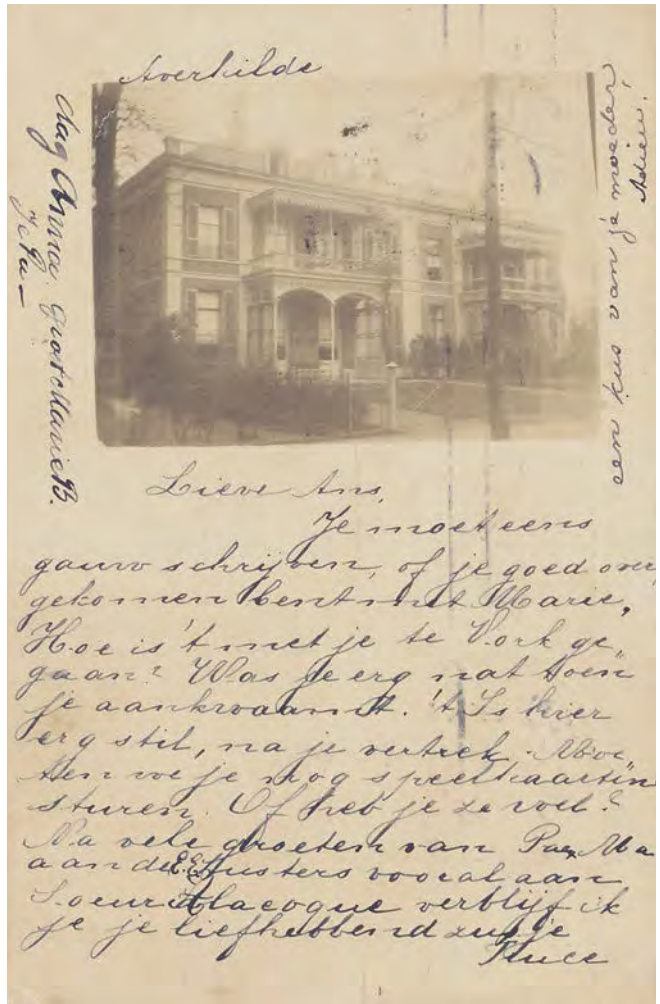 Averhilde
dag Anna. groet Marie B.
een kus van je moeder
Adieu!
Lieve Ans,
Je moet eens
gauw schrijven, of je goed over
gekomen bent met Marie,
Hoe is 't met je te Vork ge„
gaan? Was je erg nat toen
je aankwaamt. 't Is hier
erg stil, na je vertrek. Moe
ten we je nog speelkaarten
sturen. Of heb je ze wel?
Na vele groeten van Pa, Ma
aan de E.E. Zusters vooral aan
Soeur Alacoque verblijf ik
je je liefhebbend zusje
Truce